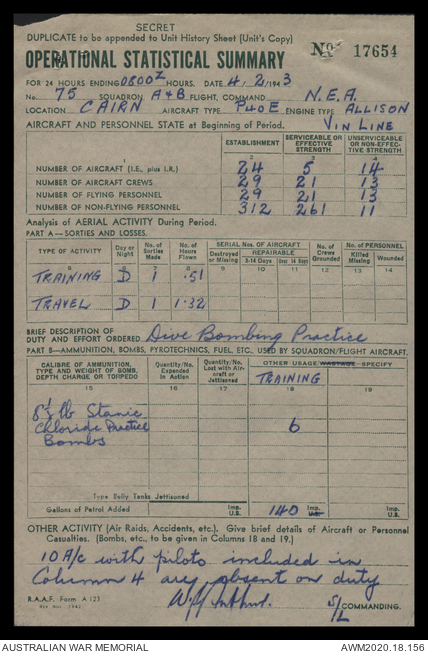 SECRET
DUPLICATE to be appended to Unit History Sheet (Unit's Copy)
OPERATIONAL STATISTICAL SUMMARY No 17654
FOR 24 HOURS ENDING 0800Z HOURS. DATE 4/2/1943
No. 75 SQUADRON A&B FLIGHT, COMMAND N.E.A.
LOCATION CAIRN AIRCRAFT TYPE P40E ENGINE TYPE ALLISON
AIRCRAFT AND PERSONNEL STATE at Beginning of Period. V IN LINE
ESTABLISHMENT SERVICEABLE OR EFFECTIVE STRENGTH UNSERVICEABLE OR NON-EFFECTIVE STRENGTH
1 2 3 4
NUMBER OF AIRCRAFT (I.E., plus I.R.) 24 5 14
NUMBER OF AIRCRAFT CREWS 29 21 13
NUMBER OF FLYING PERSONNEL 29 21 13
NUMBER OF NON-FLYING PERSONNEL 312 261 11
Analysis of AERIAL ACTIVITY During Period.
PART A—SORTIES AND LOSSES.
TYPE OF ACTIVITY Day or Night No. of Sorties Made No. of Hours Flown SERIAL Nos. OF AIRCRAFT Destroyed or Missing REPAIRABLE 3-14 Days Over 14 Days No. of Crews Grounded No. of PERSONNEL Killed Missing Wounded
9 10 11 12 13 14
TRAINING D 1 .51
TRAVEL D 1 1.32
BRIEF DESCRIPTION OF
DUTY AND EFFORT ORDERED Dive Bombing Practice
PART B—AMMUNITION, BOMBS, PYROTECHNICS, FUEL, ETC., USED BY SQUADRON/FLIGHT AIRCRAFT.
CALIBRE OF AMMUNITION, TYPE AND WEIGHT OF BOMB, DEPTH CHARGE OR TORPEDO Quantity/No. Expended in Action Quantity/No. Lost with Aircraft or Jettisoned OTHER USAGE WASTAGE SPECIFY
TRAINING
15 16 17 18 19
8½ lb Stanic
Chloride Practice 6
Bombs
Type Belly Tanks Jettisoned
Gallons of Petrol Added Imp. U.S. 140 Imp. U.S.
OTHER ACTIVITY (Air Raids, Accidents, etc.). Give brief details of Aircraft or Personnel
Casualties. (Bombs, etc., to be given in Columns 18 and 19.)
10 A/c with pilots included in
Column 4 are absent on duty
S/L COMMANDING.
R.A.A.F. Form A 123
AUSTRALIAN WAR MEMORIAL AWM2020.18.156